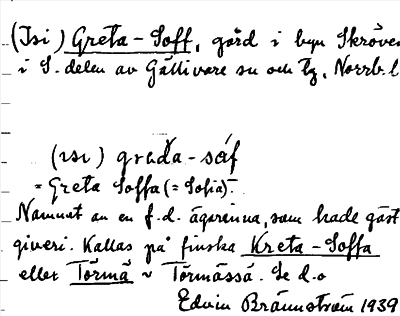 (Isi) Greta-Soff, gård i byn Skröven
i S. delen av Gällivare sn och tg, Norrb. l
(ısı) greda-sof
= Greta Soffa (= Sofia).
Namnet an en f.d. ägarinna, som hade gäst
giveri. Kallas på finska Kreta-Soffa
eller Törmä ~ Törmässä. Se d.o
Edvin Brännström 1939